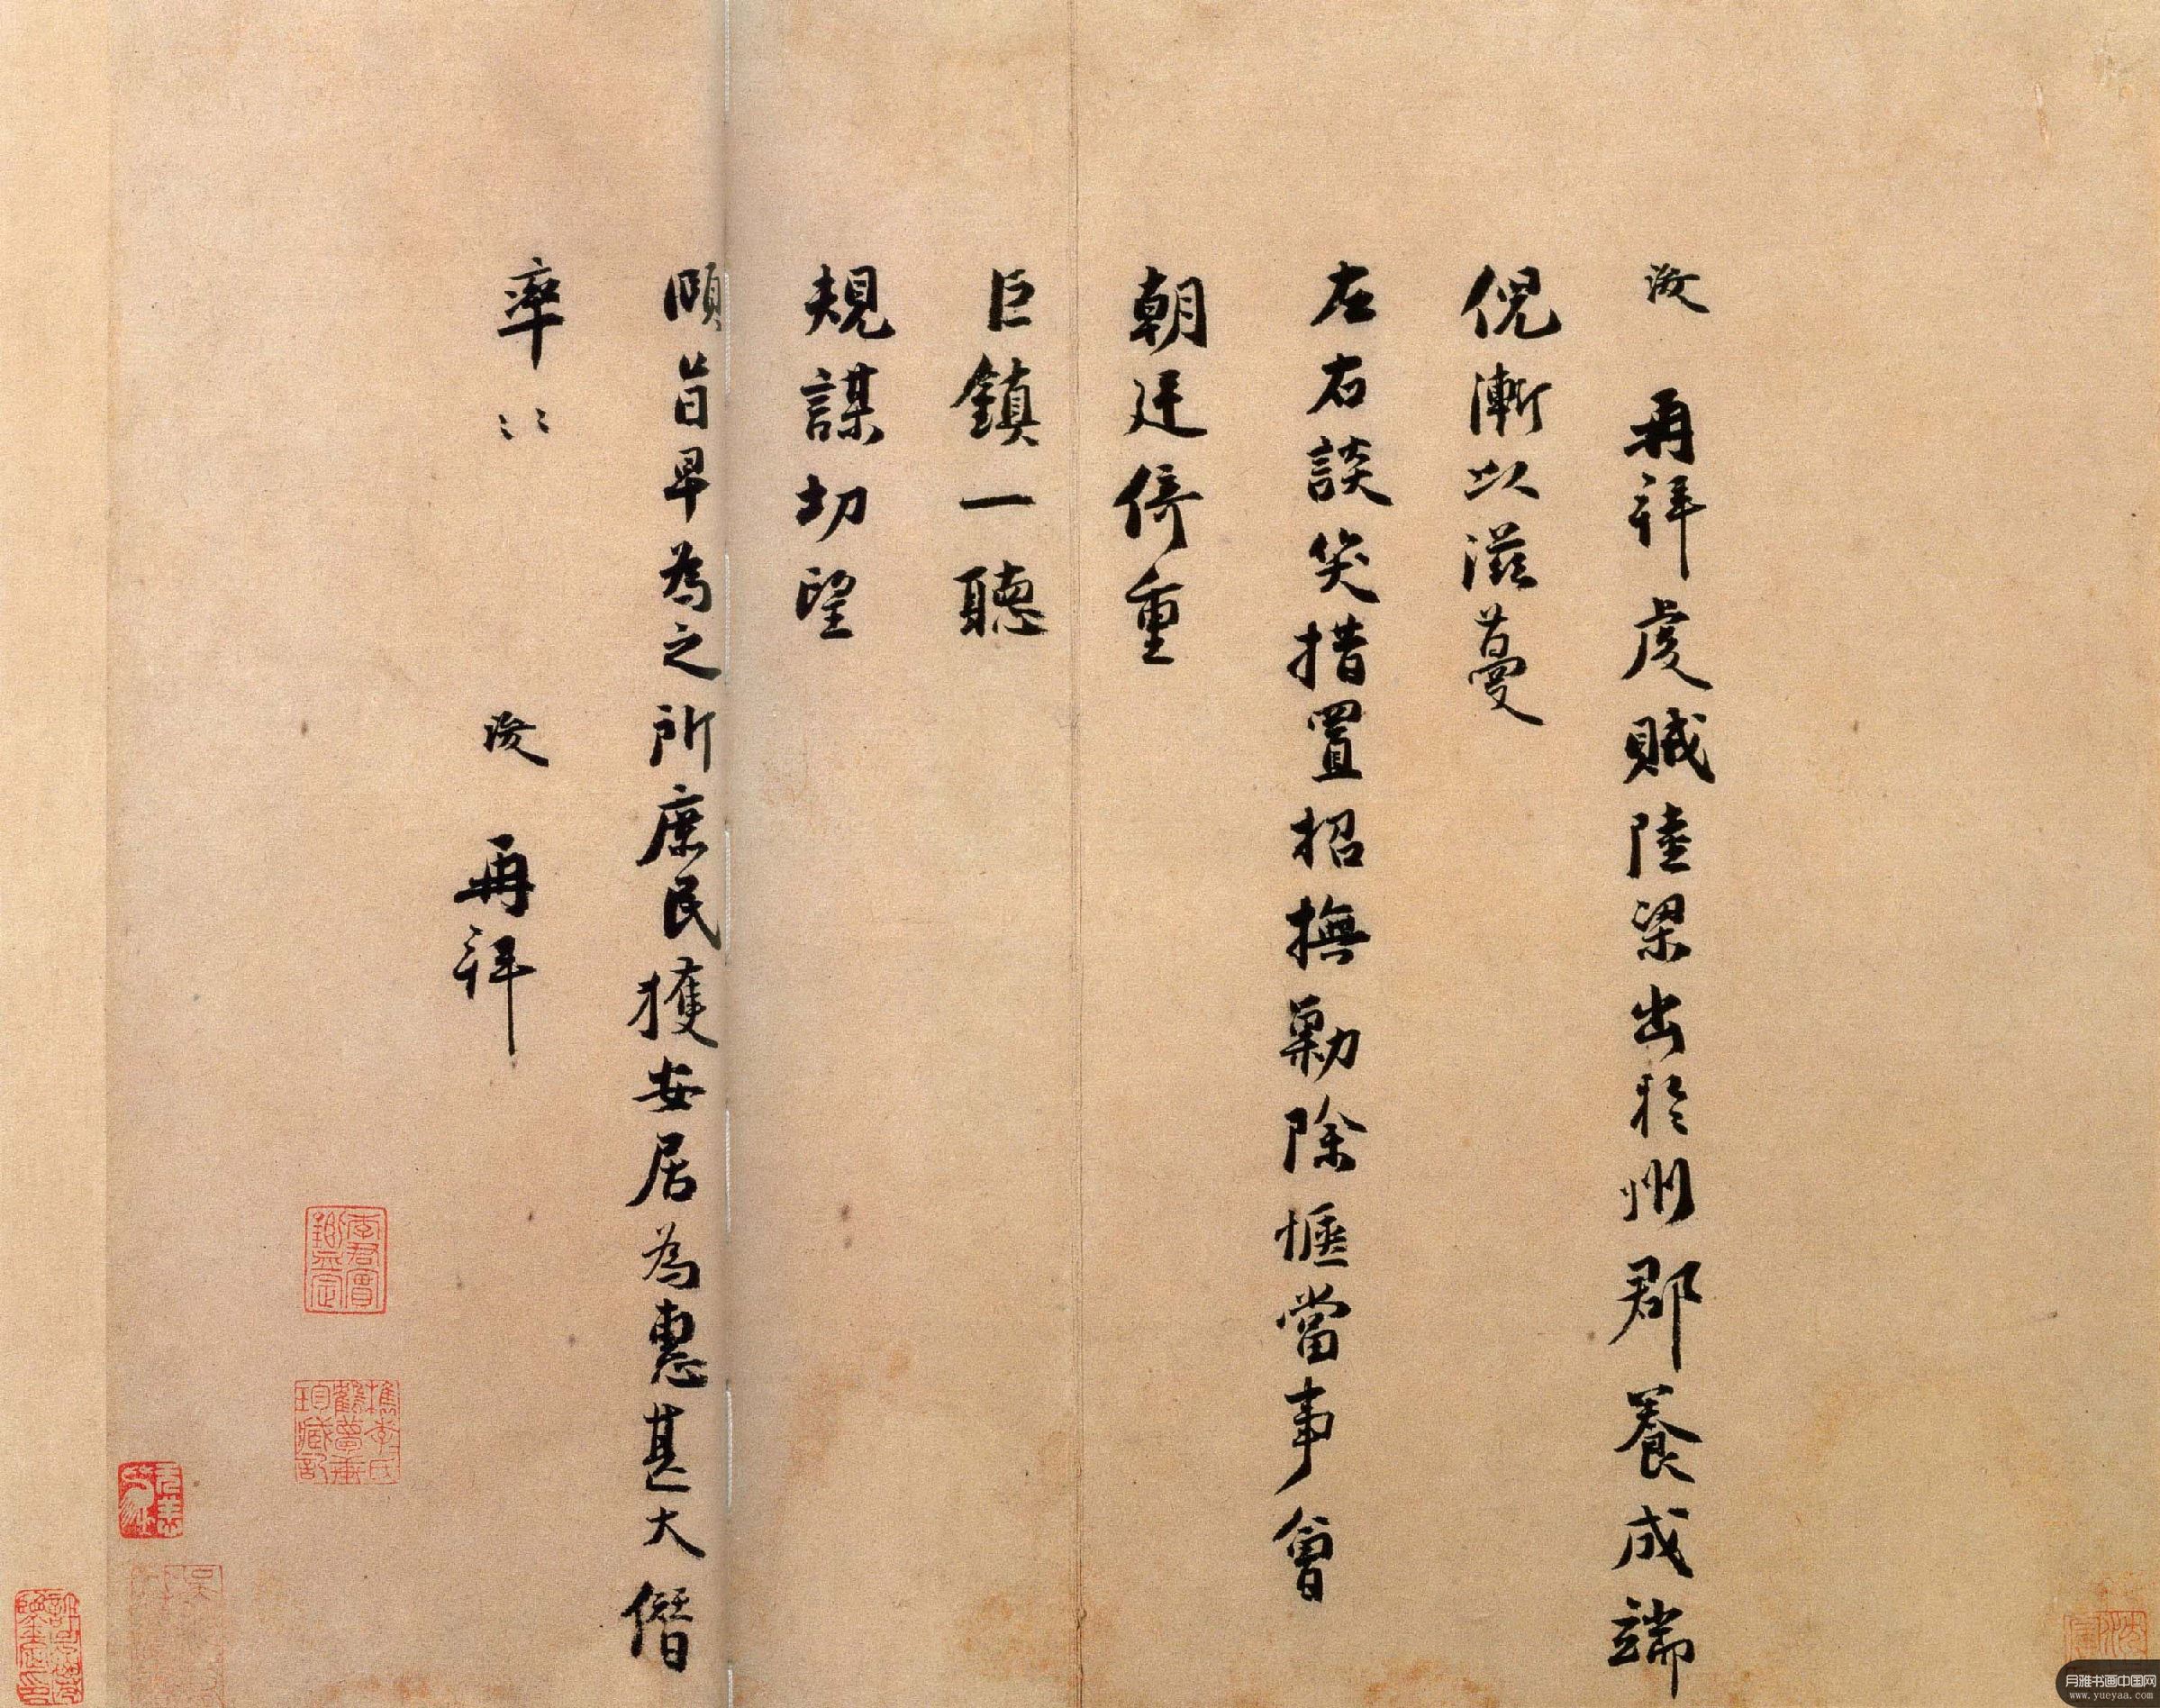 浚再拜虔賊陸梁出於州郡養成端
倪漸以滋蔓
左右談笑措置招撫勦除惬當事會
朝廷倚重
巨鎮一聽
規謀切望
頤旨早為之所庶民獲安居為惠甚大僭
率〻浚再拜
李君實鑒定
檇李氏鶴夢軒珍藏記
月雅书画中国网
www.yueyaa.com